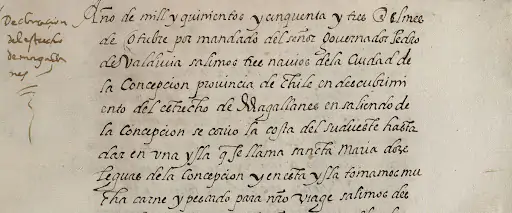 Declaracion
del estrecho
de magallanes
Año de mill y quinientos y cinquenta y tres @ el mes
de Otubre por mandado del señor Governador Pedro
de Valdivia salimos tres navios de la Ciudad de
la Concepcion provincia de Chile en descubrimi
ento del estrecho de Magallanes en saliendo de
la Concepcion se corrio la costa del sudueste hasta
dar en vna ysla q se llama sancta Maria doze
leguas de la Concepcion y en esta ysla tomamos mu
cha carne y pescado para nro viage salimos des